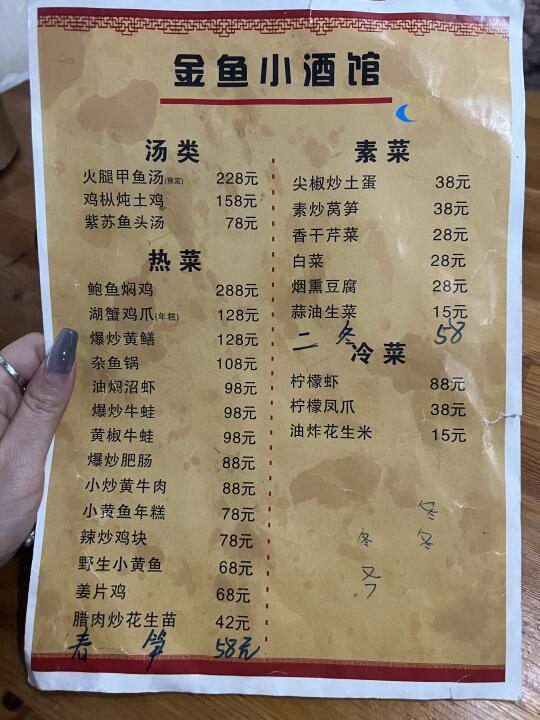 金鱼小酒馆
汤类
火腿甲鱼汤(预定) 228元
鸡枞炖土鸡 158元
紫苏鱼头汤 78元
热菜
鲍鱼焖鸡 288元
湖蟹鸡爪(年糕) 128元
爆炒黄鳝 128元
杂鱼锅 108元
油焖沼虾 98元
爆炒牛蛙 98元
黄椒牛蛙 98元
爆炒肥肠 88元
小炒黄牛肉 88元
小黄鱼年糕 78元
辣炒鸡块 78元
野生小黄鱼 68元
姜片鸡 68元
腊肉炒花生苗 42元
春笋 58元
素菜
尖椒炒土蛋 38元
素炒莴笋 38元
香干芹菜 28元
白菜 28元
烟熏豆腐 28元
蒜油生菜 15元
二冬 58
冷菜
柠檬虾 88元
柠檬凤爪 38元
油炸花生米 15元
冬
冬 冬